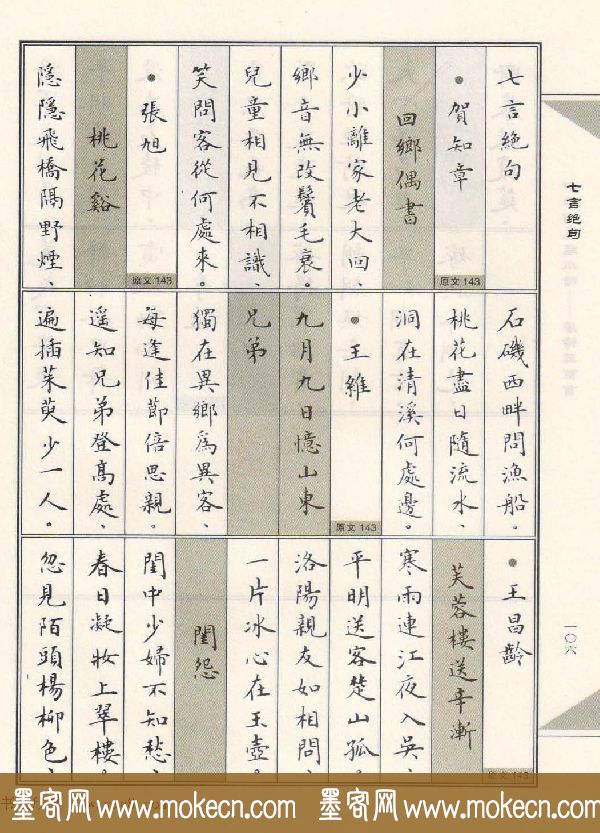 七言絕句
賀知章
原文143
回鄉偶書
少小離家老大回
鄉音無改鬢毛衰。
兒童相見不相識、
笑問客從何處來。
張旭
原文143
桃花谿
隱隱飛橋隔野煙、
石磯西畔問漁船。
桃花盡日隨流水、
洞在清溪何處邊。
王維
原文143
九月九日憶山東
兄弟
獨在異鄉為異客、
每逢佳節倍思親。
遥知兄弟登高處、
遍插茱萸少一人。
王昌齡
芙蓉樓送辛漸
原文143
寒雨連江夜入吳、
平明送客楚山孤。
洛陽親友如相問、
一片冰心在玉壺。
閨怨
閨中少婦不知愁、
春日凝妝上翠樓。
忽見陌頭楊柳色、
七言绝句
一〇六
墨客网 www.mokecn.com 墨客网 www.mokecn.com